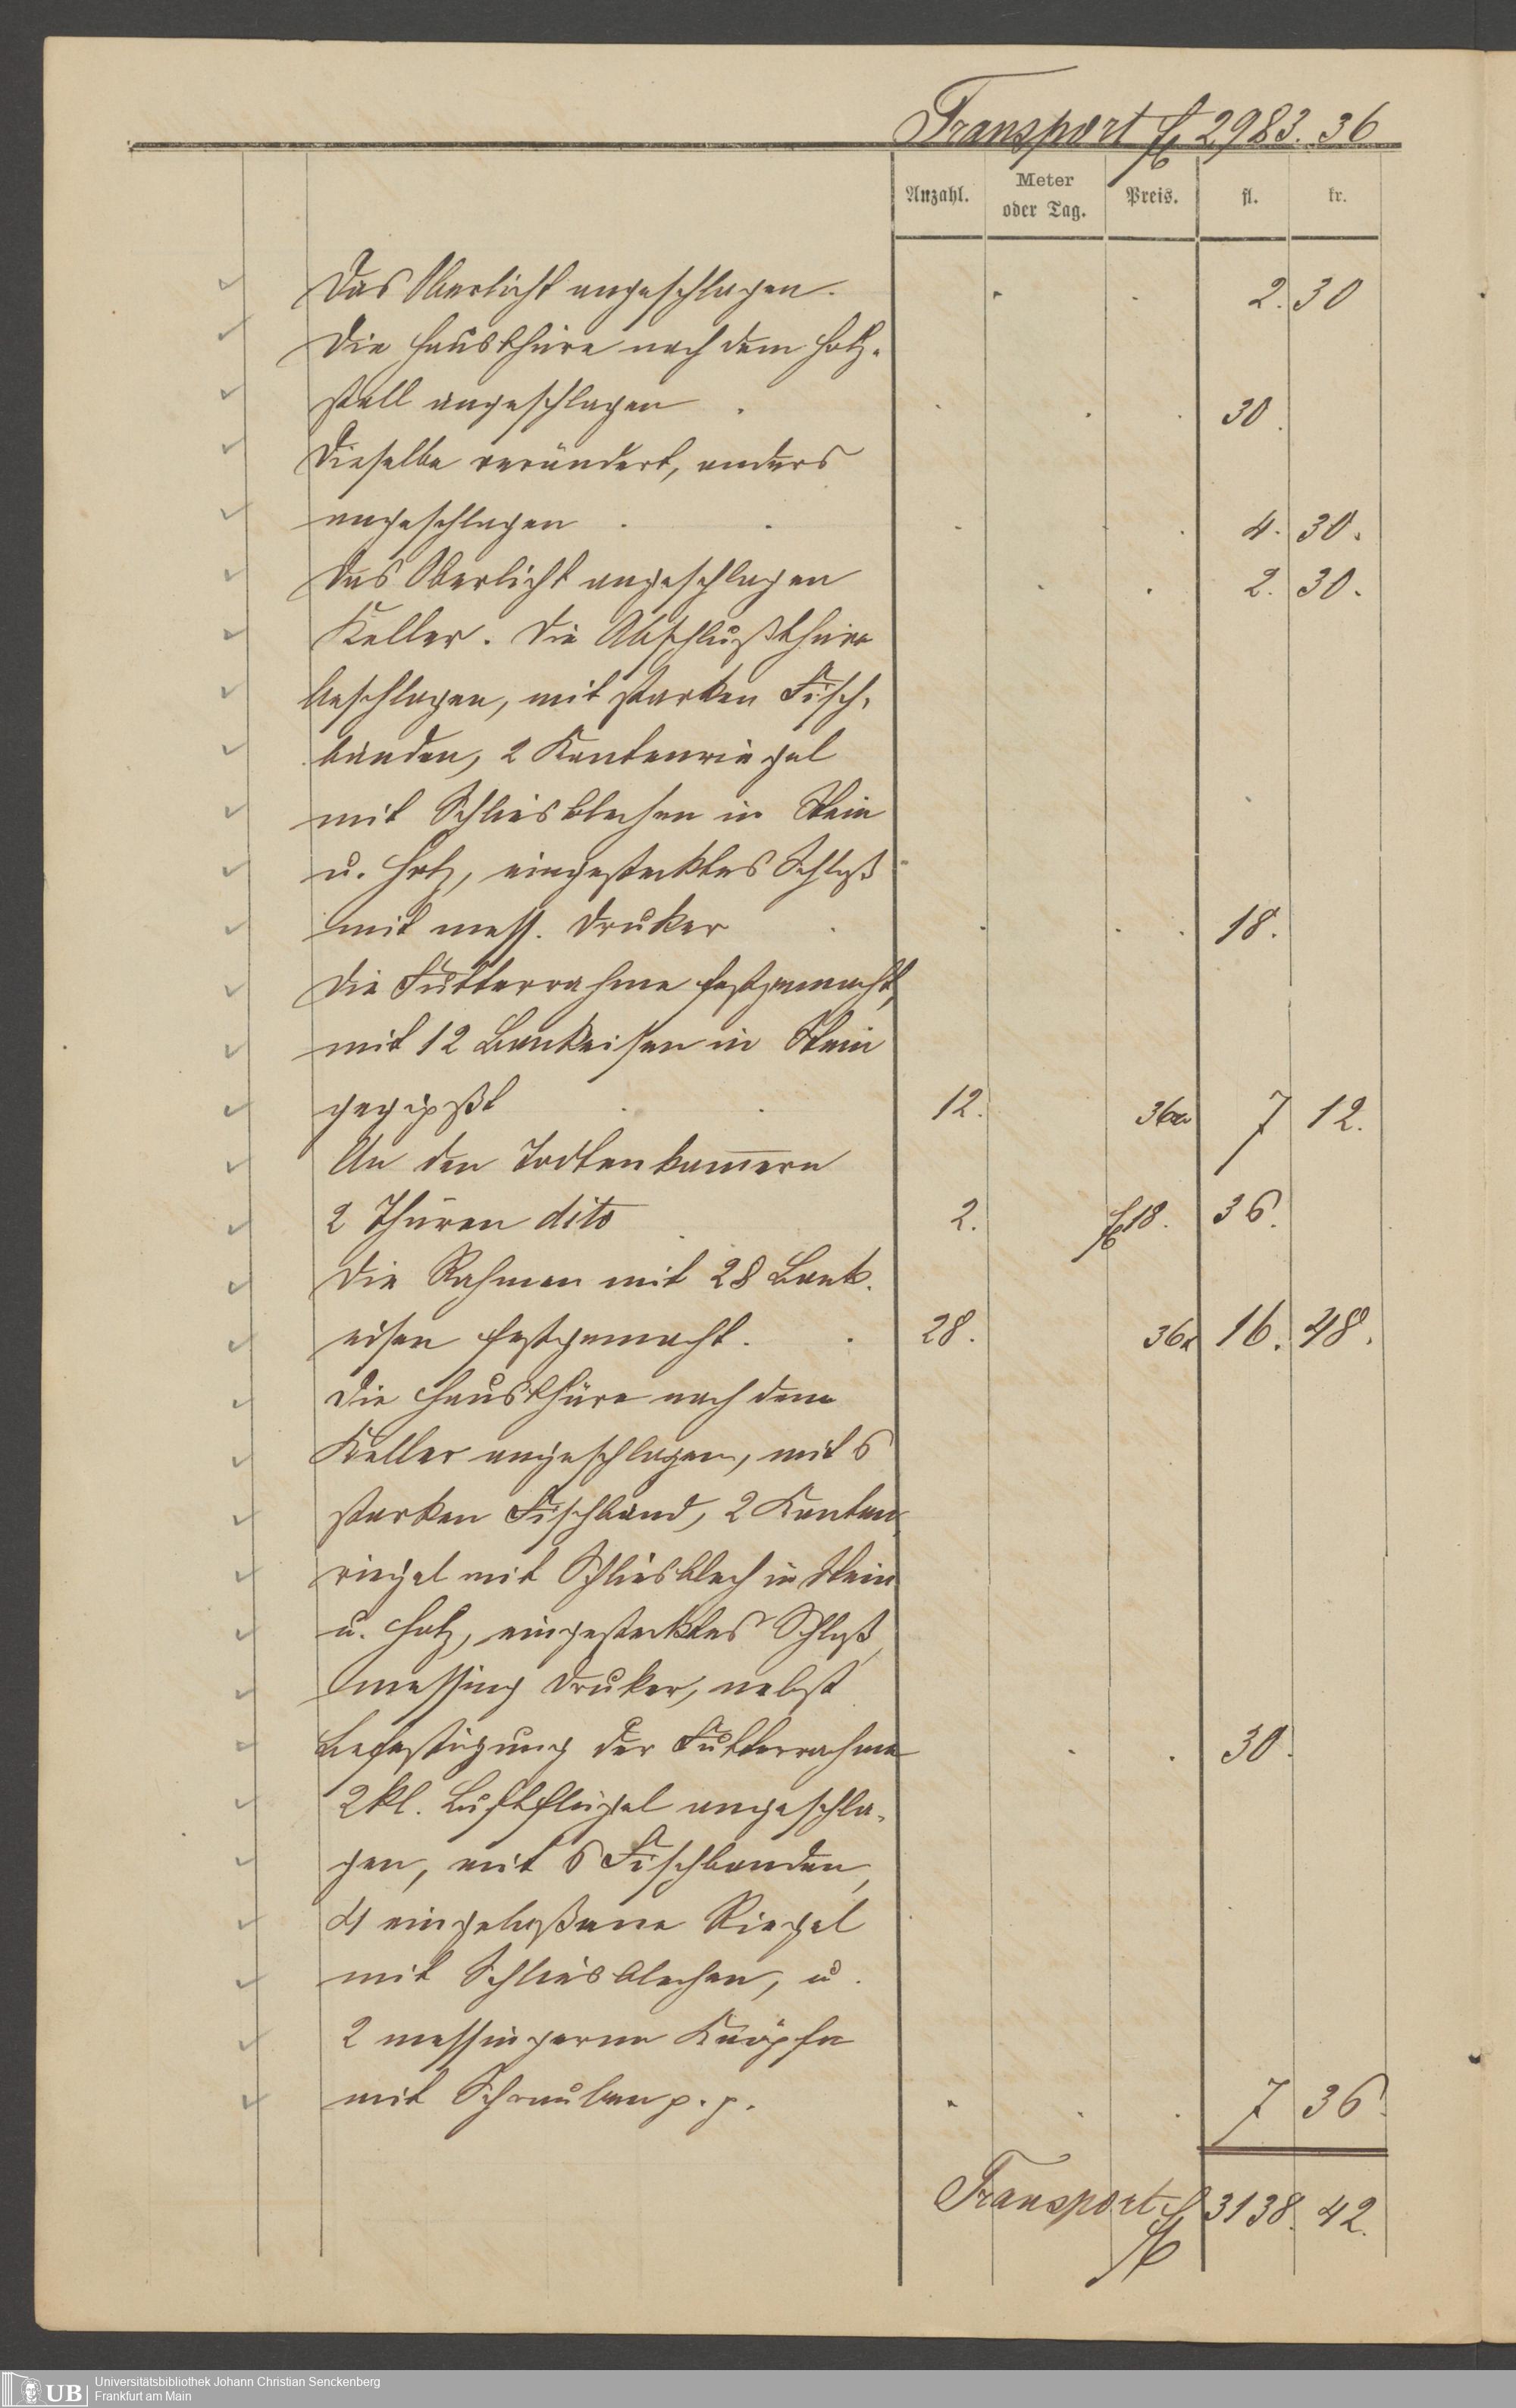 Transport fl 2983. 36
Anzahl. Meter oder Tag. Preis. fl. kr.
Das Oberlicht angeschlagen. 2. 30
Die Hausthüre nach dem Holz-
stall angeschlagen . 30.
Dieselbe verändert, anders
angeschlagen . 4. 30.
Das Oberlicht angeschlagen 2. 30.
Keller. Die Abschlußthüre
beschlagen, mit starken Fisch-
bänden, 2 Kantenriegel
mit Schliesblechen in Stein
u. Holz, eingestecktes Schloß
mit mess. Druker 18.
Die Futterrahme festgemacht,
mit 12 Bankeisen in Stein
gegipßt 12. 36xr 7 12.
An den Todtenkam̅ern
2 Thüren dito 2. fl 18. 36.
Die Rahmen mit 28 Bank-
eisen festgemacht. 28. 36x 16. 48.
Die Hausthüre nach dem
Keller angeschlagen, mit 6
starken Fischband, 2 Kanten
riegel mit Schliesblech in Stein
u. Holz, eingestecktes Schloß,
messing Druker, nebst
Befestigung der Futterrahme 30.
2 kl. Luftflügel angeschla-
gen, mit 6 Fischbanden,
4 eingelaßene Riegel
mit Schliesblechen, u.
2 messingerne Knöpfe
mit Schrauben p. p. 7 36.
Transport fl 3138. 42.
UB Universitätsbibliothek Johann Christian Senckenberg
Frankfurt am Main